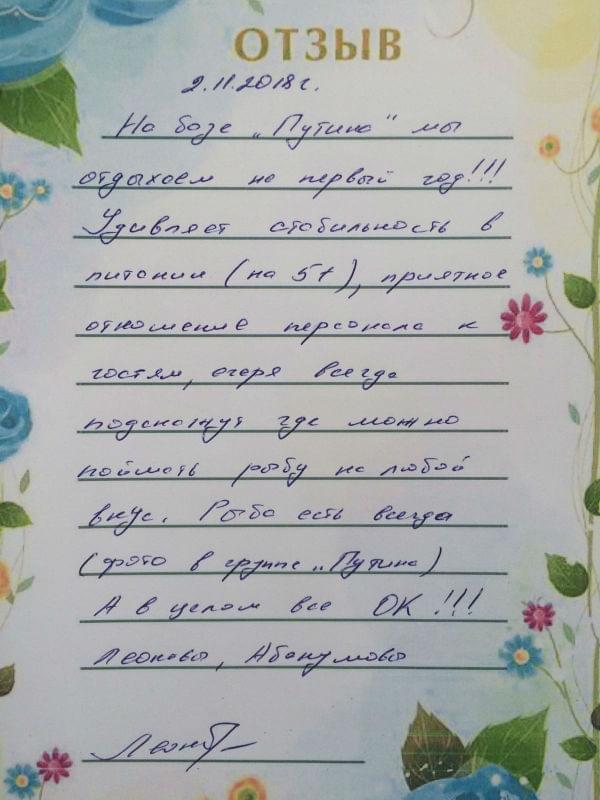 ОТЗЫВ
2.11.2018г.
На базе „Путина" мы
отдыхаем не первый год!!!
Удивляет стабильность в
питании (на 5+), приятное
отношение персонала к
гостям, егеря всегда
подскажут где можно
поймать рыбу на любой
вкус. Рыба есть всегда
(фото в группе „Путина)
А в целом все ОК!!!
Леоновы, Абакумовы